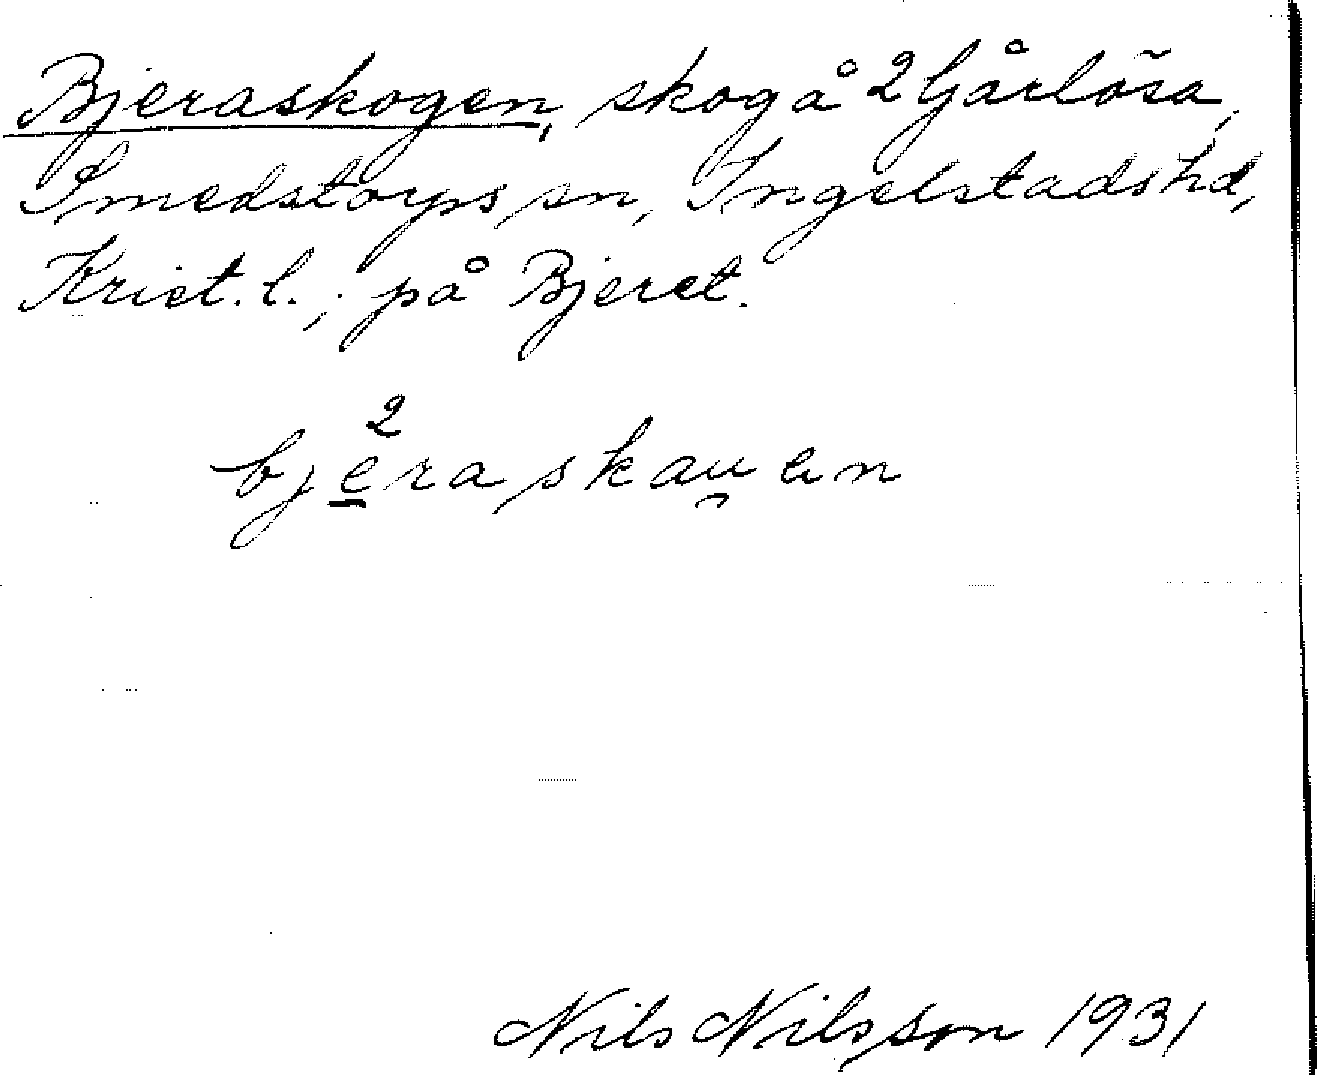 Bjeraskogen, skog å 2 Gårlösa,
Smedstorps sn, Ingelstads hd,
Krist. l.; på Bjeret.
2
bjeraskauen
Nils Nilsson 1931